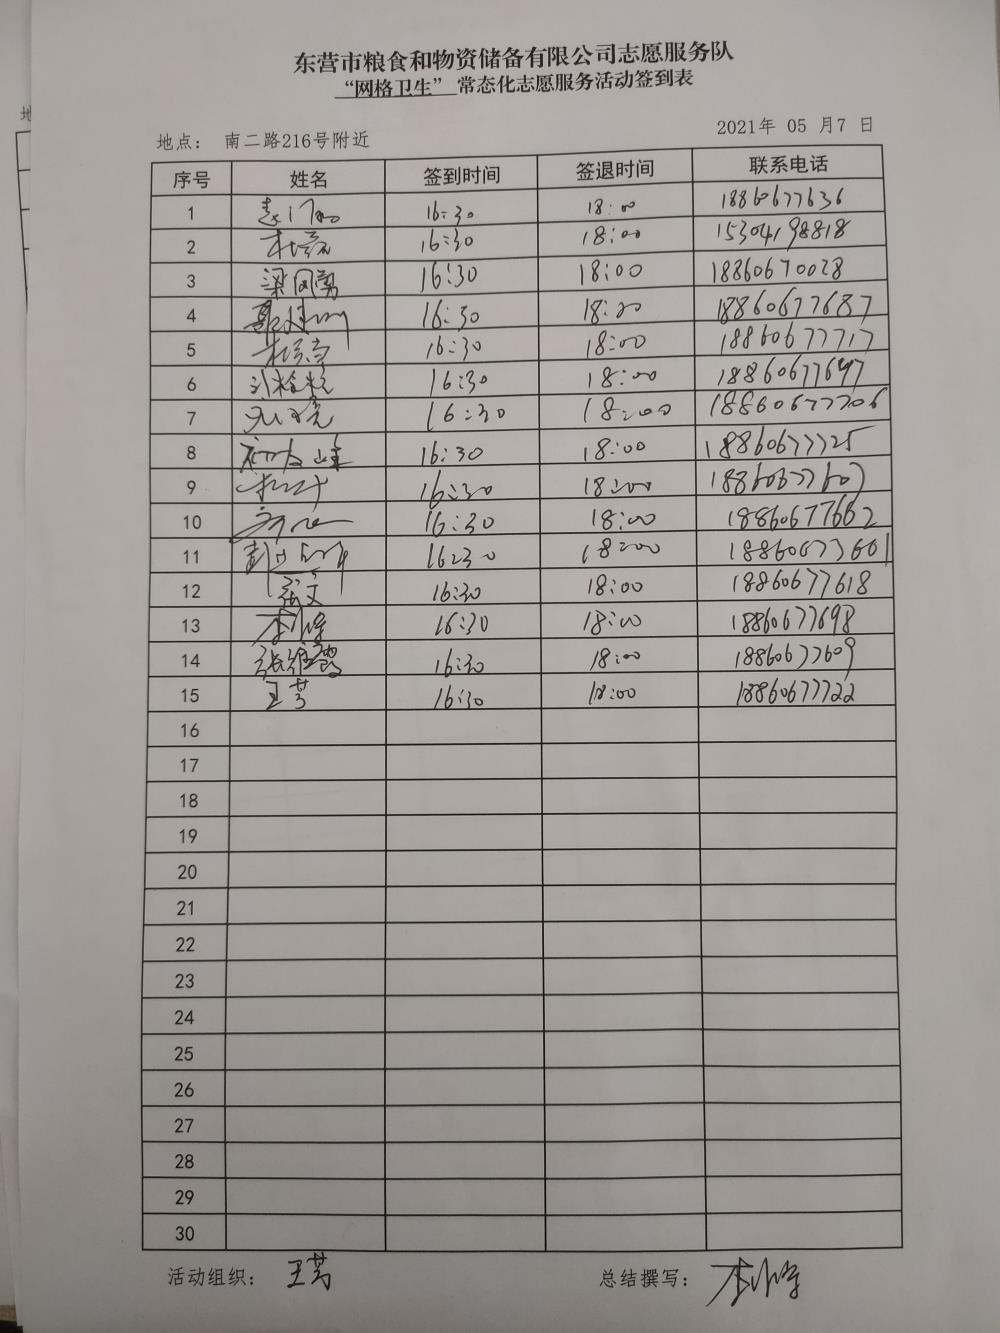 东营市粮食和物资储备有限公司志愿服务队
“网格卫生” 常态化志愿服务活动签到表
地点： 南二路216号附近 2021年 05 月7 日
序号 姓名 签到时间 签退时间 联系电话
1 16:30 18:00 18860677636
2 16:30 18:00 15304198818
3 梁凤勇 16:30 18:00 18860670028
4 16:30 18:00 18860677687
5 16:30 18:00 18860677717
6 16:30 18:00 18860677697
7 16:30 18:00 18860677706
8 16:30 18:00 18860677725
9 16:30 18:00 18860677607
10 16:30 18:00 18860677662
11 16:30 18:00 18860673601
12 张文 16:30 18:00 18860677618
13 16:30 18:00 18860677698
14 16:30 18:00 18860677609
15 王芳 16:30 18:00 18860677722
16
17
18
19
20
21
22
23
24
25
26
27
28
29
30
活动组织： 王芳 总结撰写：